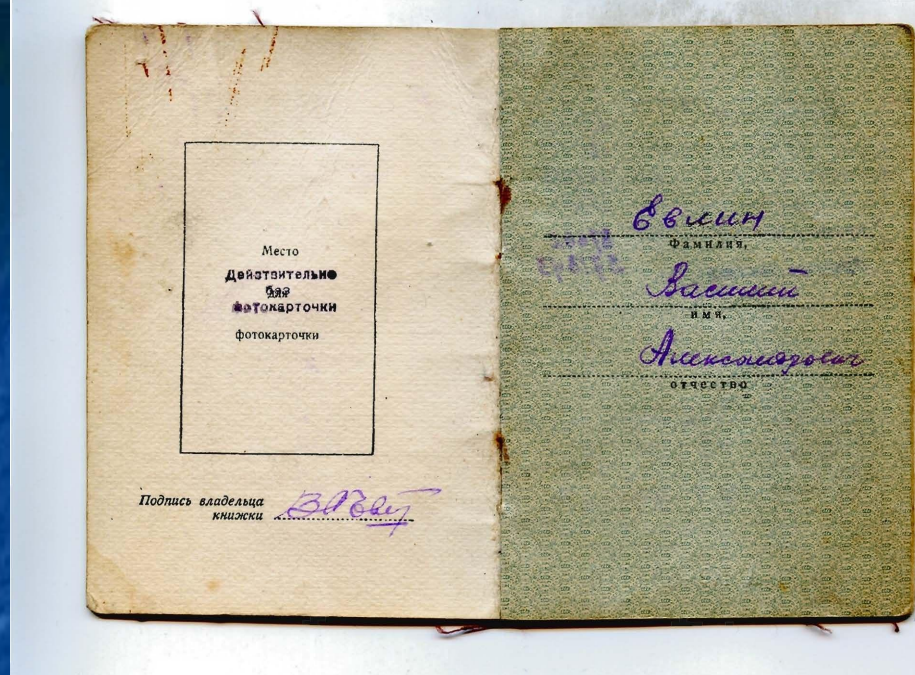 Место
Действительно
без
для
фотокарточки
фотокарточки
Подпись владельца
книжки
Евлин
Фамилия,
Василий
имя,
Александрович
отчество